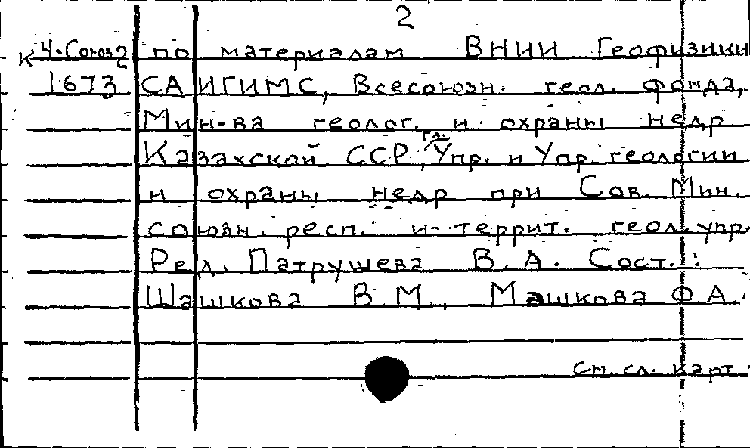 2
К 4. Союз 2 по материалам ВНИИ Геофизики
1673 САИГИМС, Всесоюзн. геол. фонда,
Мин-ва геолог. и охраны недр
Казахской ССР, гл. Упр. и Упр. геологии
и охраны недр при Сов. Мин.
союзн. респ. и террит. геол. упр.
Ред. Патрушева В.А. Сост.:
Шашкова В.М., Машкова Ф.А.
см. сл. карт.